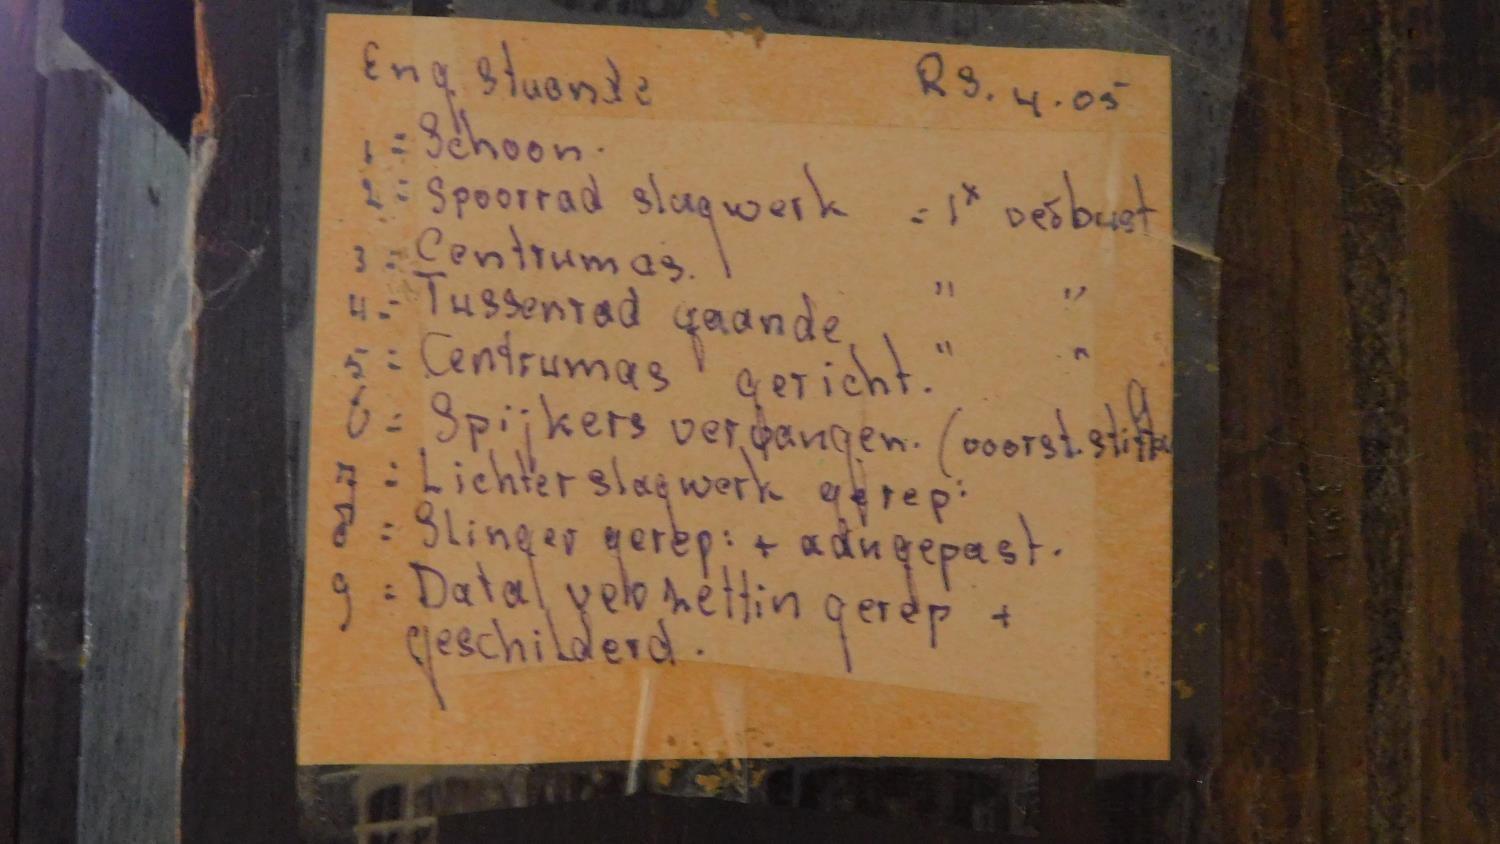 Eng. Stuande R9.4.05
1 = Schoon.
2 = Spoorrad slagwerk = 1x verbust
3 = Centrumas. " "
4 = Tussenrad gaande " "
5 = Centrumas gericht.
6 = Spijkers vervangen. (voorst. stiften
7 = Lichter slagwerk gerep:
8 = Slinger gerep: + aangepast.
9 = Datal gerep +
geschilderd.